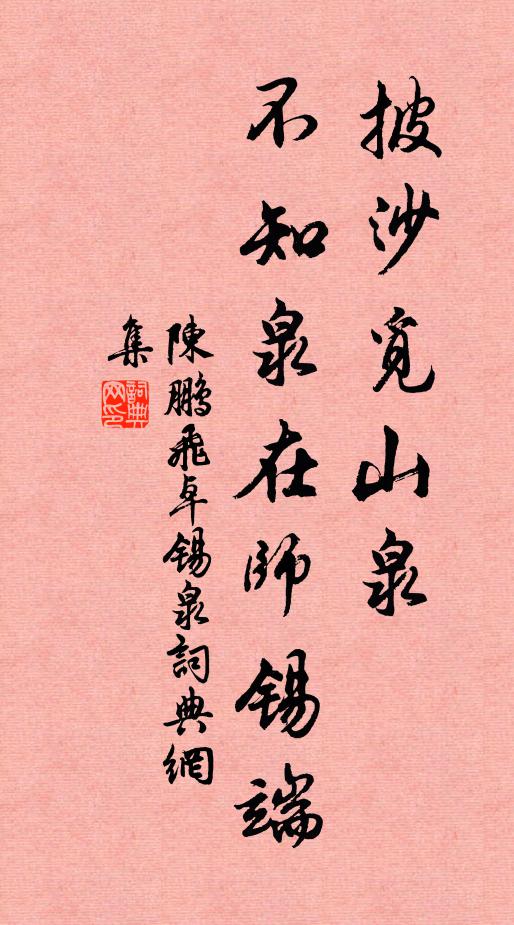 披沙覓山泉
不知泉在師錫端
陳鵬飛卓錫泉詞典網
集
詞典網印